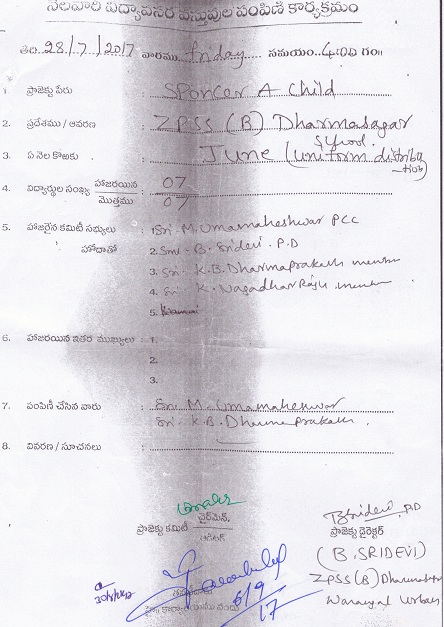 నెలవారీ విద్యావసర వస్తువుల పంపిణీ కార్యక్రమం
తేది 28/7/2017 వారము friday సమయం 4:00 గం॥
1. ప్రాజెక్టు పేరు : Sponcer A Child
2. ప్రదేశము / ఆవరణ : ZPSS (B) Dharmasagar
School.
3. ఏ నెల కొఱకు : June (uniform distribu
-tion
4. విద్యార్థుల సంఖ్య హాజరయిన 07
మొత్తము 07
5. హాజరైన కమిటీ సభ్యులు : 1. Sri. M. Umamaheshwar PCC
హోదాతో 2. Smt. B. Sridevi. P.D
3. Sri. K.B. DharmaPrakash member
4. Sri K. Nagadhar Raju member
5.
6. హాజరయిన ఇతర ముఖ్యులు : 1.
2.
3.
7. పంపిణీ చేసిన వారు : Sri. M. Umamaheshwar
Sri. K.B. Dharmaprakash.
8. వివరణ / సూచనలు :
ఛైర్మెన్,
ప్రాజెక్టు కమిటీ
ఆడిటర్
BSridevi, P.D
ప్రాజెక్టు డైరెక్టర్
(B. SRIDEVI)
ZPSS (B) Dharmasagar
Warangal Urban
6/9
17